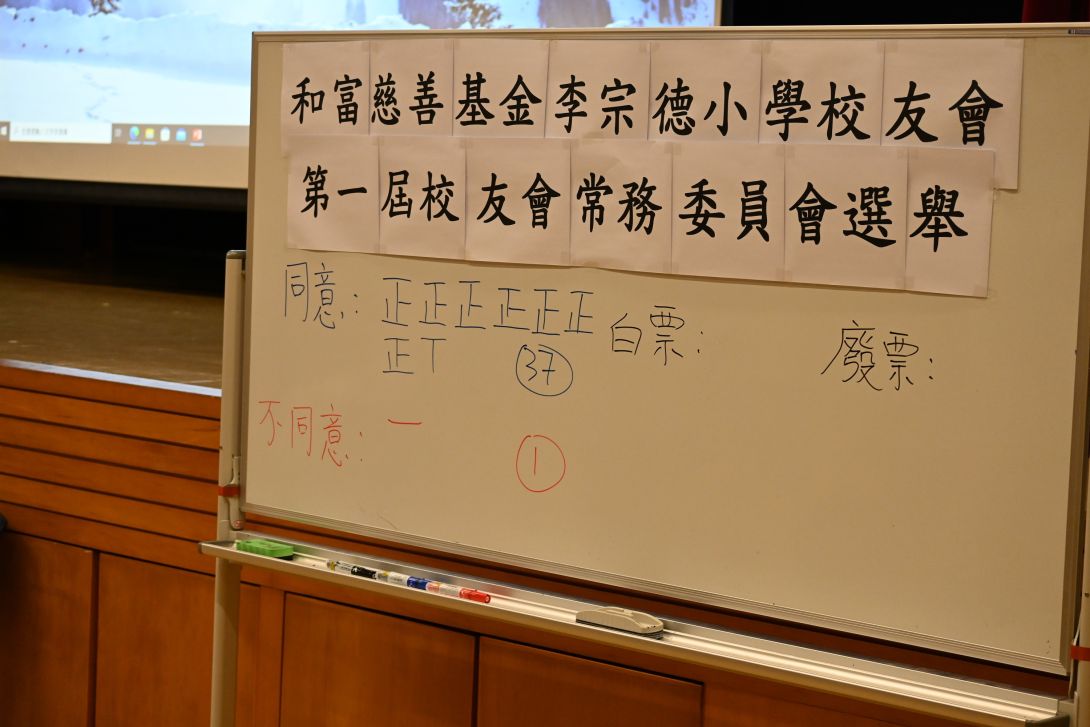 和富慈善基金李宗德小學校友會
第一屆校友會常務委員會選舉
同意: 正正正正正正 白票: 廢票:
正丅 37
不同意: 一 1